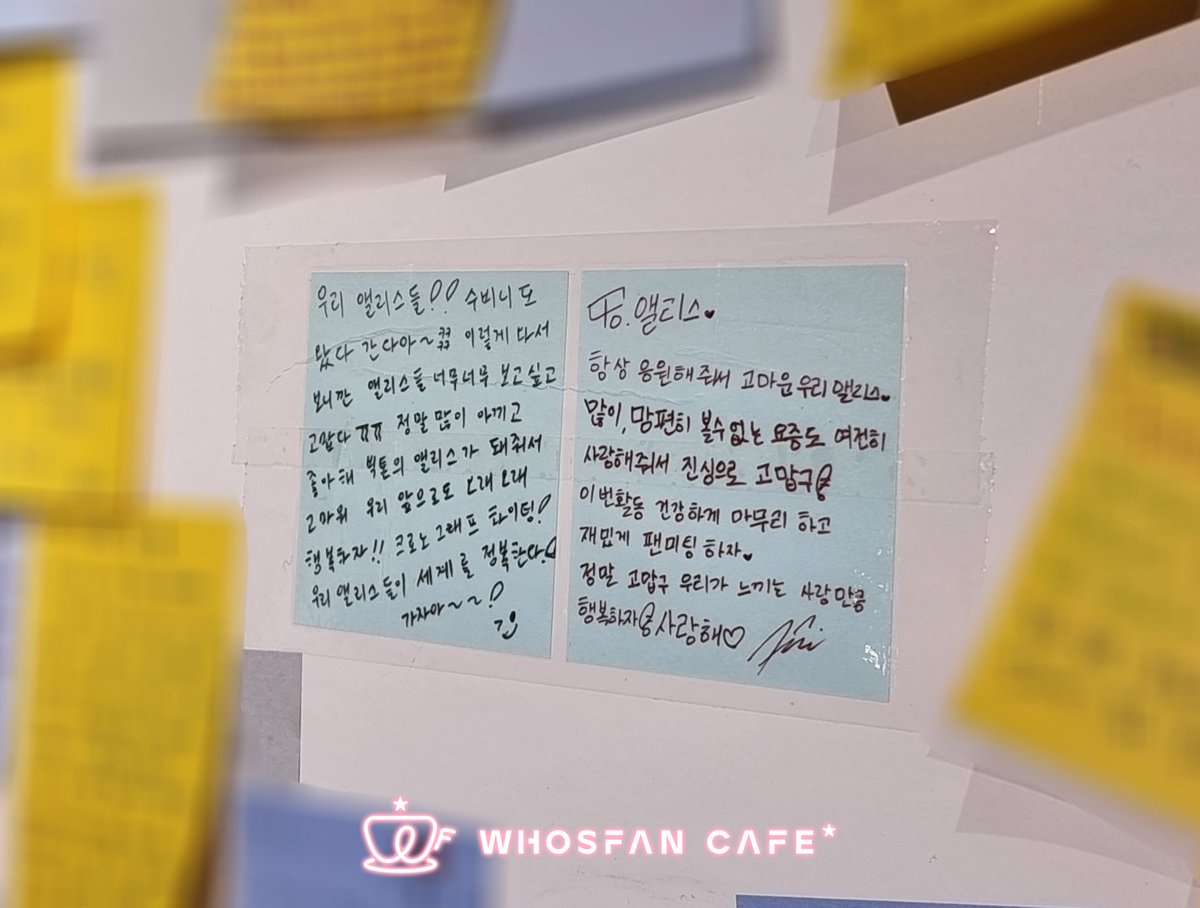 우리 앨리스들!! 수비니또
왔다 간다아~ 꾱 이렇게 다서
보니깐 앨리스들 너무너무 보고싶고
고맙다 ㅠㅠ 정말 많이 아끼고
좋아해 빅톤의 앨리스가 돼줘서
고마워 우리 앞으로도 오래오래
행복하자!! 크로노그래프 화이팅!
우리 앨리스들이 세계를 정복한다!
가자아~~!
To. 앨리스♥
항상 응원해줘서 고마운 우리 앨리스♥
많이, 맘편히 볼수 없는 요즘도 여전히
사랑해줘서 진심으로 고맙구
이번활동 건강하게 마무리 하고
재밌게 팬미팅 하자♥
정말 고맙구 우리가 느끼는 사랑만큼
행복하자 사랑해♡
WHOSFAN CAFE